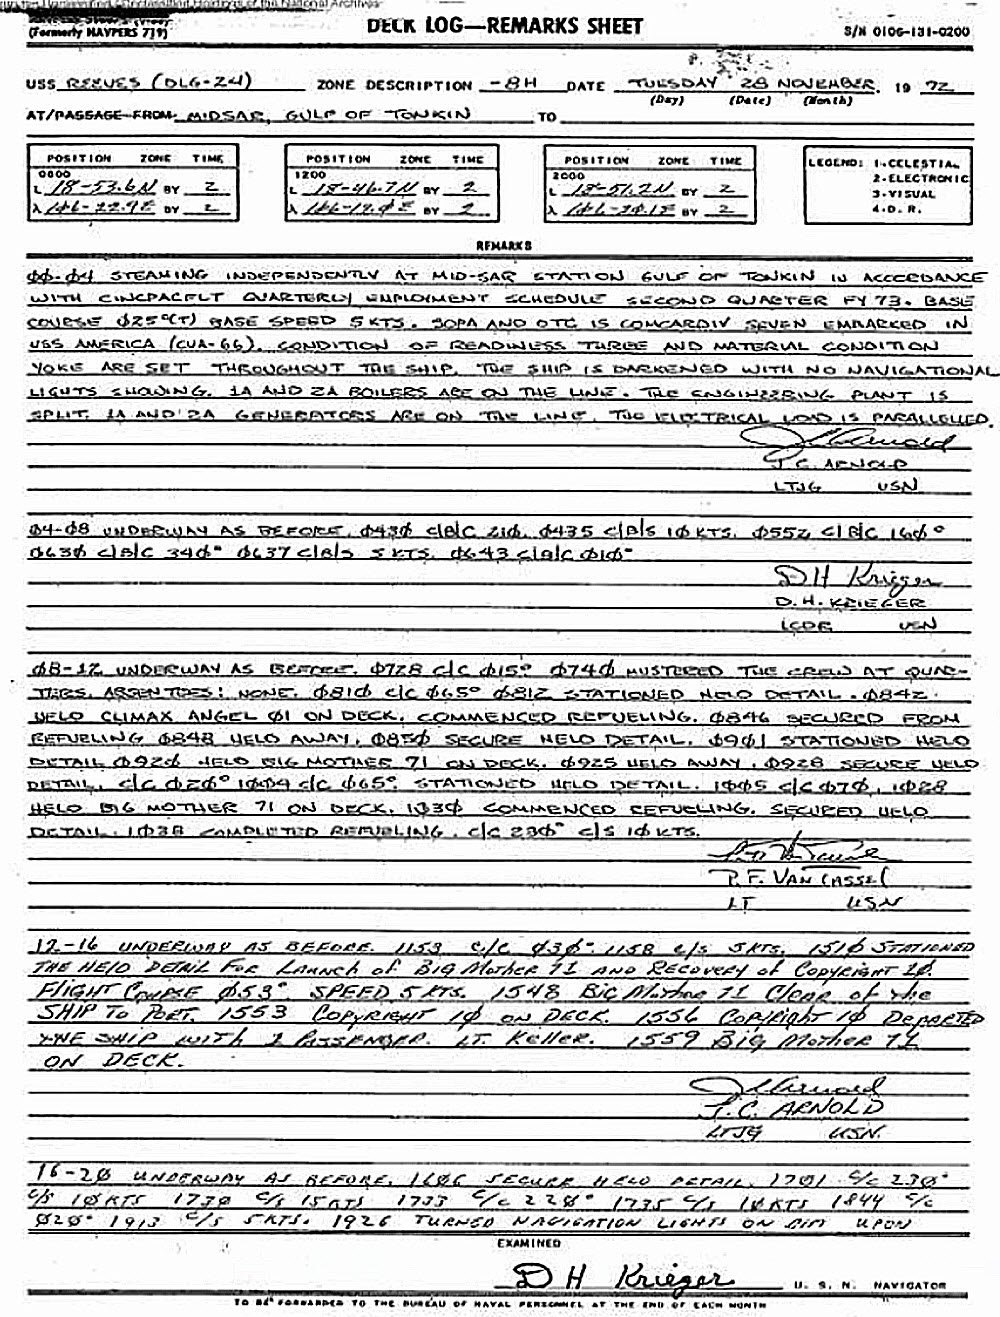 (Formerly NAVPERS 719)
DECK LOG—REMARKS SHEET
S/N 0106-131-0200
USS REEVES (DLG-24) ZONE DESCRIPTION -8H DATE TUESDAY 28 NOVEMBER, 19 72
(Day) (Date) (Month)
AT/PASSAGE FROM MIDSAR, GULF OF TONKIN TO
POSITION ZONE TIME POSITION ZONE TIME POSITION ZONE TIME LEGEND: 1-CELESTIAL
0800 1200 2000 2-ELECTRONIC
L 18-53.6N BY 2 L 18-46.7N BY 2 L 18-51.2N BY 2 3-VISUAL
λ 106-22.9E BY 2 λ BY 2 λ BY 2 4-D.R.
REMARKS
ØØ-Ø4 STEAMING INDEPENDENTLY AT MID-SAR STATION GULF OF TONKIN IN ACCORDANCE
WITH CINCPACFLT QUARTERLY EMPLOYMENT SCHEDULE SECOND QUARTER FY 73. BASE
COURSE Ø25°(T) BASE SPEED 5 KTS. SOPA AND OTC IS COMCARDIV SEVEN EMBARKED IN
USS AMERICA (CVA-66). CONDITION OF READINESS THREE AND MATERIAL CONDITION
YOKE ARE SET THROUGHOUT THE SHIP. THE SHIP IS DARKENED WITH NO NAVIGATIONAL
LIGHTS SHOWING. 1A AND 2A BOILERS ARE ON THE LINE. THE ENGINEERING PLANT IS
SPLIT. 1A AND 2A GENERATORS ARE ON THE LINE. THE ELECTRICAL LOAD IS PARALLELLED.
J C Arnold
J. C. ARNOLD
LTJG USN
Ø4-Ø8 UNDERWAY AS BEFORE. Ø43Ø C/B/C 21Ø. Ø435 C/B/S 1Ø KTS. Ø552 C/B/C 16Ø°
Ø63Ø C/B/C 34Ø° Ø637 C/B/S 5 KTS. Ø643 C/B/C Ø1Ø°
D H Krieger
D. H. KRIEGER
LCDR USN
Ø8-12 UNDERWAY AS BEFORE. Ø728 C/C Ø15° Ø74Ø MUSTERED THE CREW AT QUAR-
TERS. ABSENTEES: NONE. Ø81Ø C/C Ø65° Ø812 STATIONED HELO DETAIL. Ø842
HELO CLIMAX ANGEL Ø1 ON DECK. COMMENCED REFUELING. Ø846 SECURED FROM
REFUELING Ø848 HELO AWAY. Ø85Ø SECURE HELO DETAIL. Ø9Ø1 STATIONED HELO
DETAIL Ø92Ø HELO BIG MOTHER 71 ON DECK. Ø925 HELO AWAY. Ø928 SECURE HELO
DETAIL. C/C Ø2Ø° 1ØØ4 C/C Ø65° STATIONED HELO DETAIL. 1ØØ5 C/C Ø7Ø, 1Ø28
HELO BIG MOTHER 71 ON DECK. 1Ø3Ø COMMENCED REFUELING. SECURED HELO
DETAIL. 1Ø38 COMPLETED REFUELING. C/C 23Ø° C/S 1Ø KTS.
P. F. VAN CASSEL
LT USN
12-16 UNDERWAY AS BEFORE. 1153 C/C Ø3Ø° 1158 C/S 5 KTS. 151Ø STATIONED
THE HELO DETAIL FOR LAUNCH of BIG MOTHER 71 AND RECOVERY of COPYRIGHT 1Ø.
FLIGHT COURSE Ø53° SPEED 5 KTS. 1548 BIG MOTHER 71 CLEAR of the
SHIP TO PORT. 1553 COPYRIGHT 1Ø ON DECK. 1556 COPYRIGHT 1Ø DEPARTED
THE SHIP WITH 1 PASSENGER. LT. Keller. 1559 BIG MOTHER 71
ON DECK.
J C Arnold
J. C. ARNOLD
LTJG USN.
16-2Ø UNDERWAY AS BEFORE. 16Ø6 SECURE HELO DETAIL. 17Ø1 C/C 23Ø°
C/S 1Ø KTS 173Ø C/S 15 KTS 1733 C/C 22Ø° 1735 C/S 1Ø KTS 1844 C/C
Ø2Ø° 1913 C/S 5 KTS. 1926 TURNED NAVIGATION LIGHTS ON DIM UPON
EXAMINED
D H Krieger U. S. N. NAVIGATOR
TO BE FORWARDED TO THE BUREAU OF NAVAL PERSONNEL AT THE END OF EACH MONTH